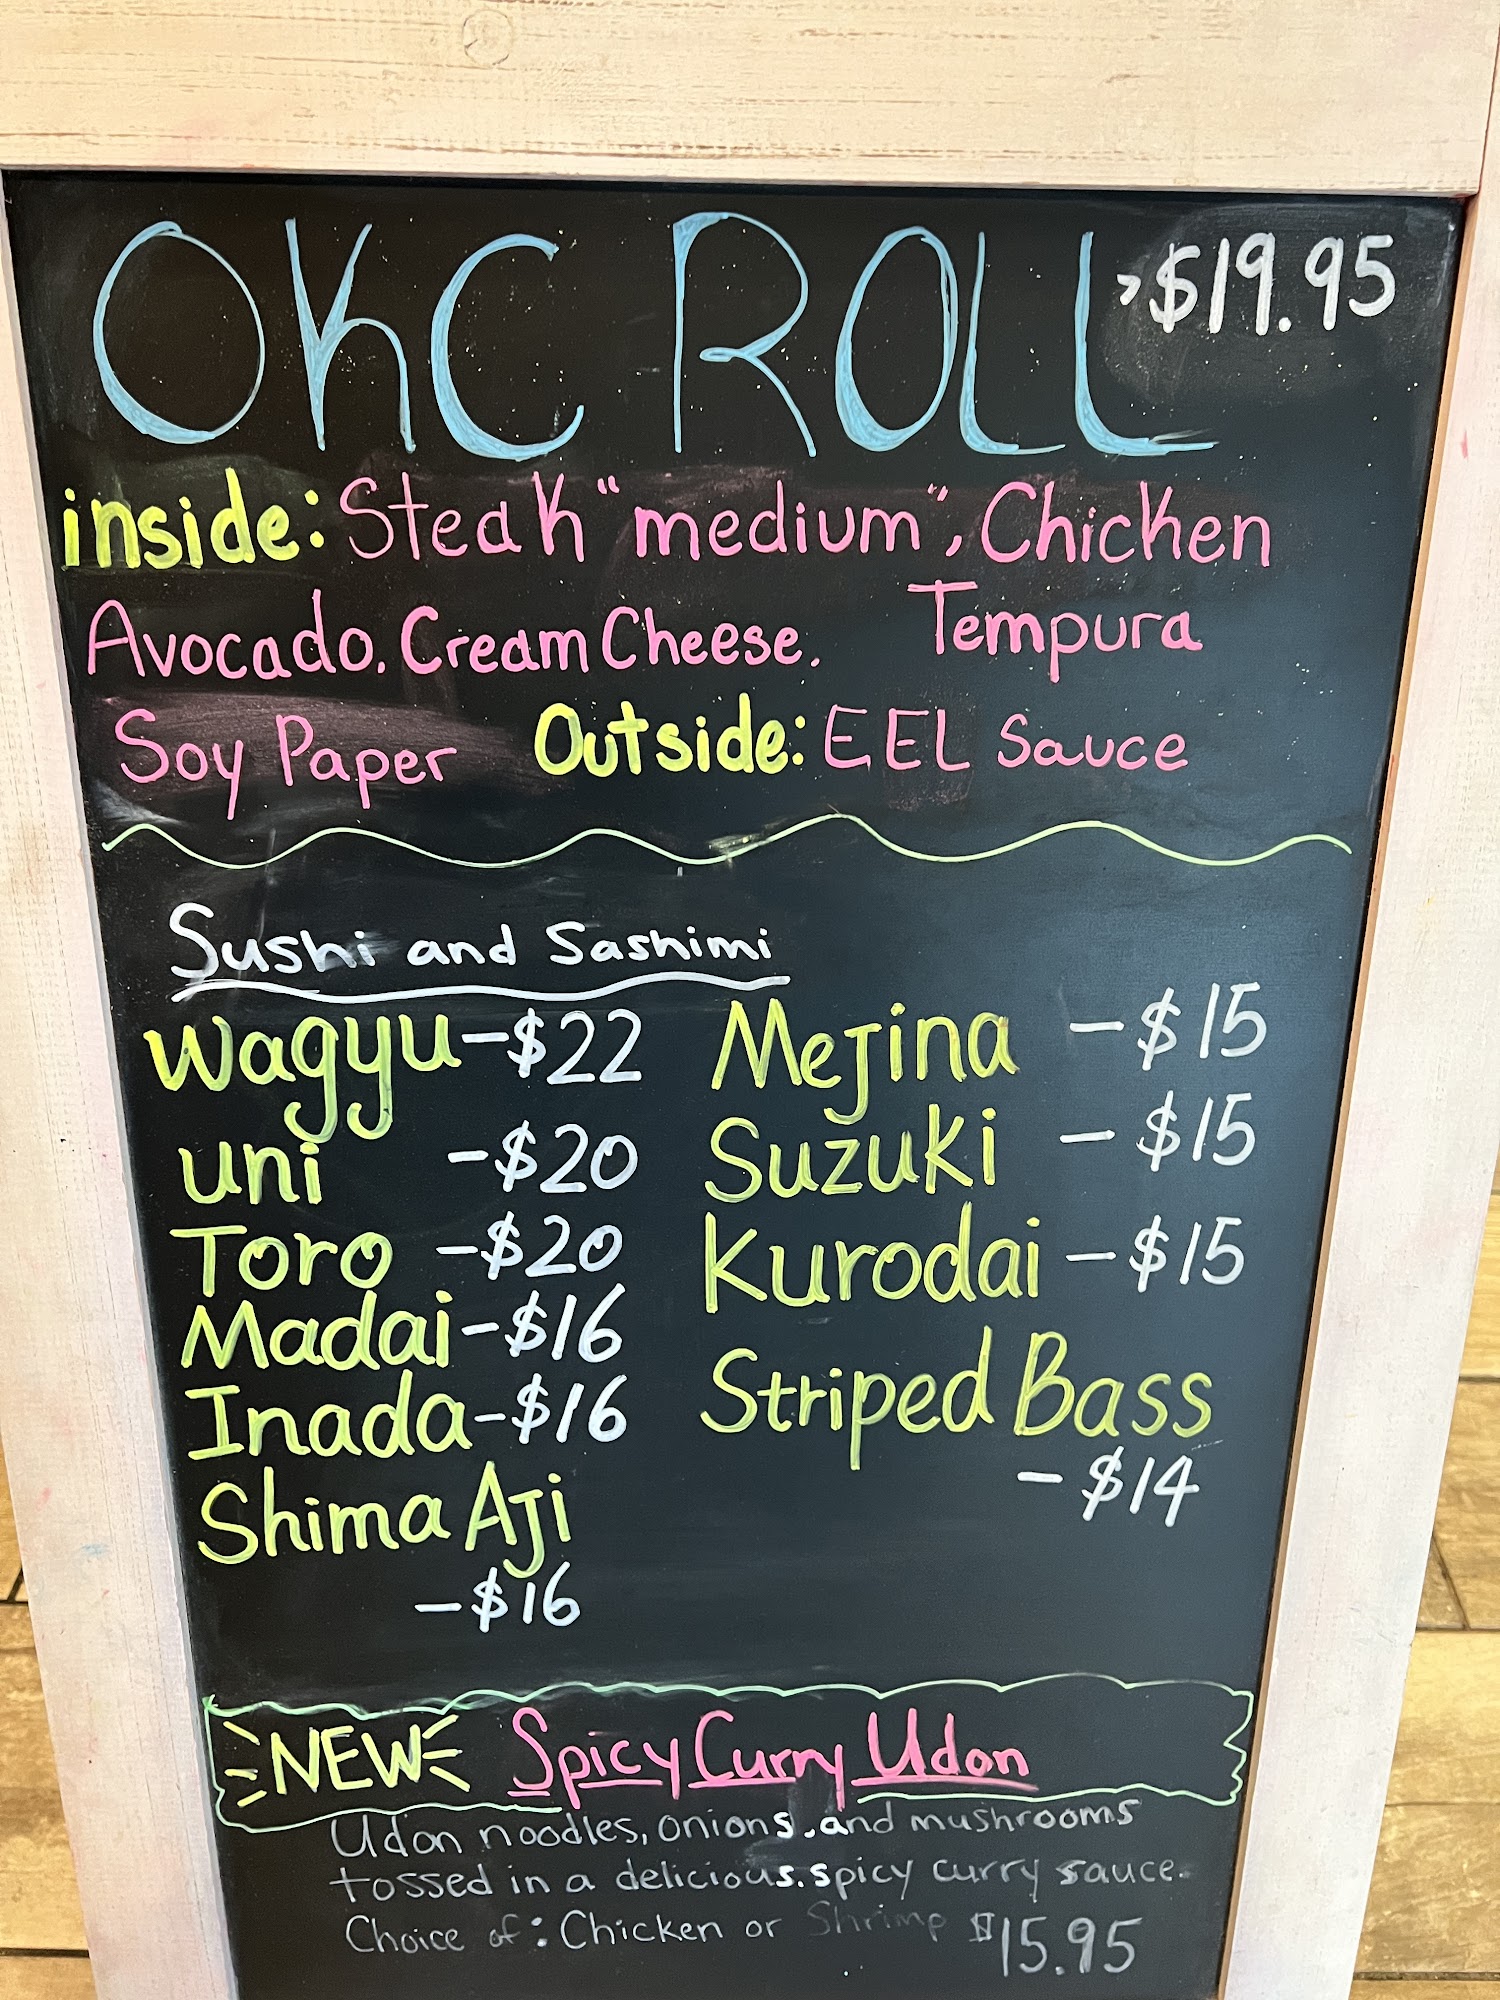 OKC ROLL >$19.95
inside: Steak "medium", Chicken
Avocado. Cream Cheese. Tempura
Soy Paper Outside: EEL Sauce
Sushi and Sashimi
Wagyu -$22
uni -$20
Toro -$20
Madai -$16
Inada -$16
Shima Aji
-$16
Mejina -$15
Suzuki -$15
Kurodai -$15
Striped Bass
-$14
NEW Spicy Curry Udon
Udon noodles, onions, and mushrooms
tossed in a delicious, spicy curry sauce.
Choice of: Chicken or Shrimp $15.95